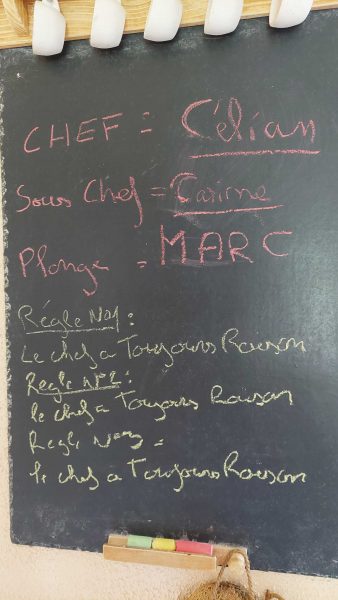 CHEF = Célian
Sous Chef = Carine
Plonge = MARC
Règle N°1 :
Le chef a Toujours Raison
Regle N°2 :
le chef a Toujours Raison
Regle N°3 =
le chef a Toujours Raison